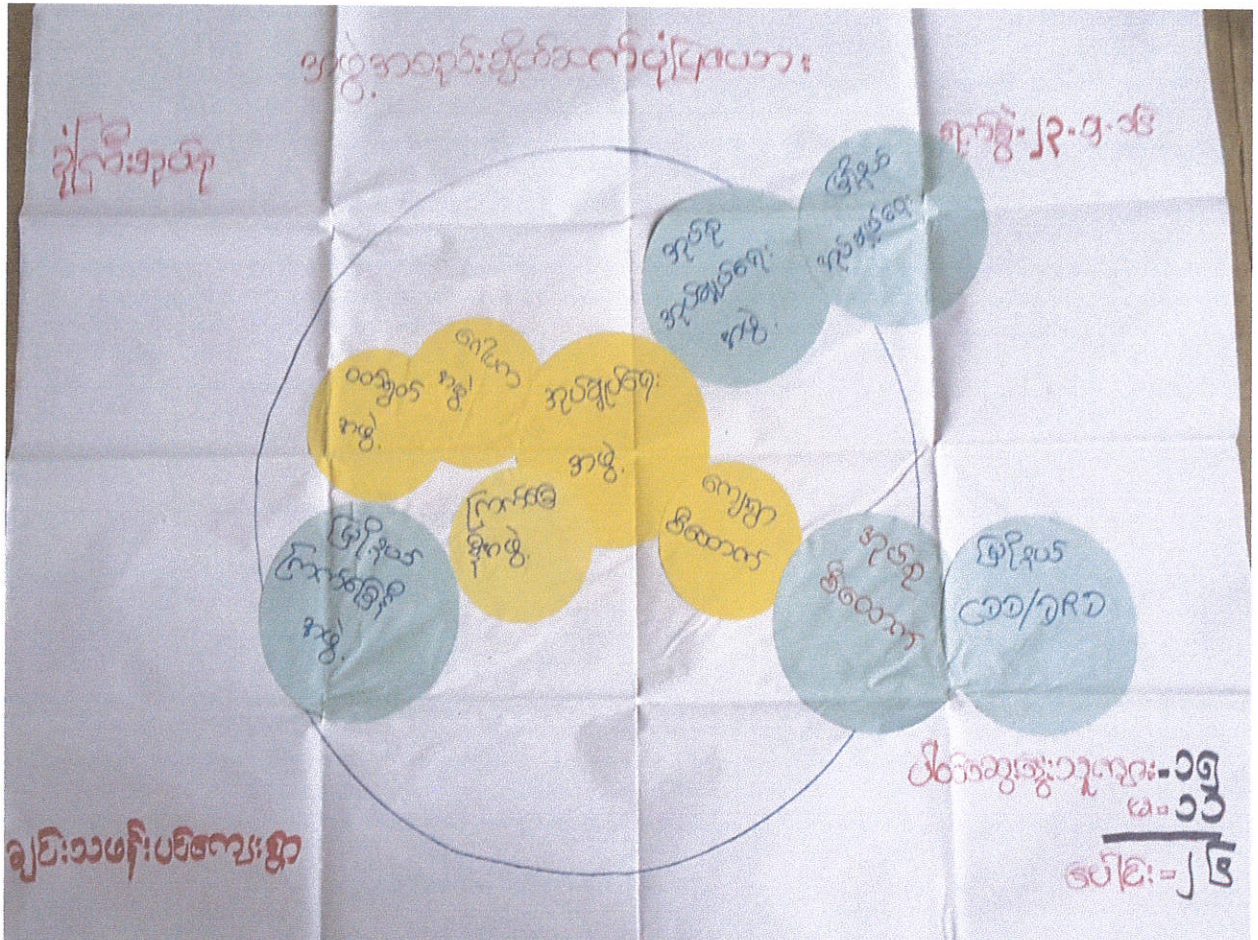 အဖွဲ့အစည်းချိတ်ဆက်ပုံပြဇယား
ခုံကြီးအုပ်စု
ရက်စွဲ-၂၃-၅-၁၆
မြို့နယ်
အုပ်ချုပ်ရေး
အုပ်စု
အုပ်ချုပ်ရေး
အဖွဲ့
ဂေါပက
အဖွဲ့
ဝတ်ရွတ်
အဖွဲ့
အုပ်ချုပ်ရေး
အဖွဲ့
ကြက်ခြေ
နီအဖွဲ့
ကျေးရွာ
စီထောက်
မြို့နယ်
ကြက်ခြေနီ
အဖွဲ့
အုပ်စု
စီထောက်
မြို့နယ်
CDD/DRD
ပါဝင်ဆွေးနွေးသူကျား-၁၅
မ-၁၁
ပေါင်း-၂၆
ချင်းသဖန်းပင်ကျေးရွာ